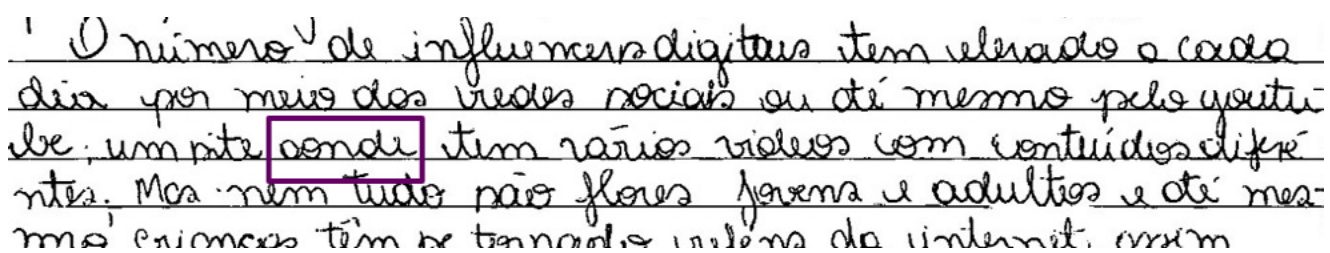 O número de influencers digitais tem elevado a cada
dia por meio das redes sociais ou até mesmo pelo youtu-
be, um site aonde tem vários videos com conteúdos diferê
ntes. Mas nem tudo são flores jovens e adultos e até mes-
mo crianças têm se tornado reféns da internet, assim